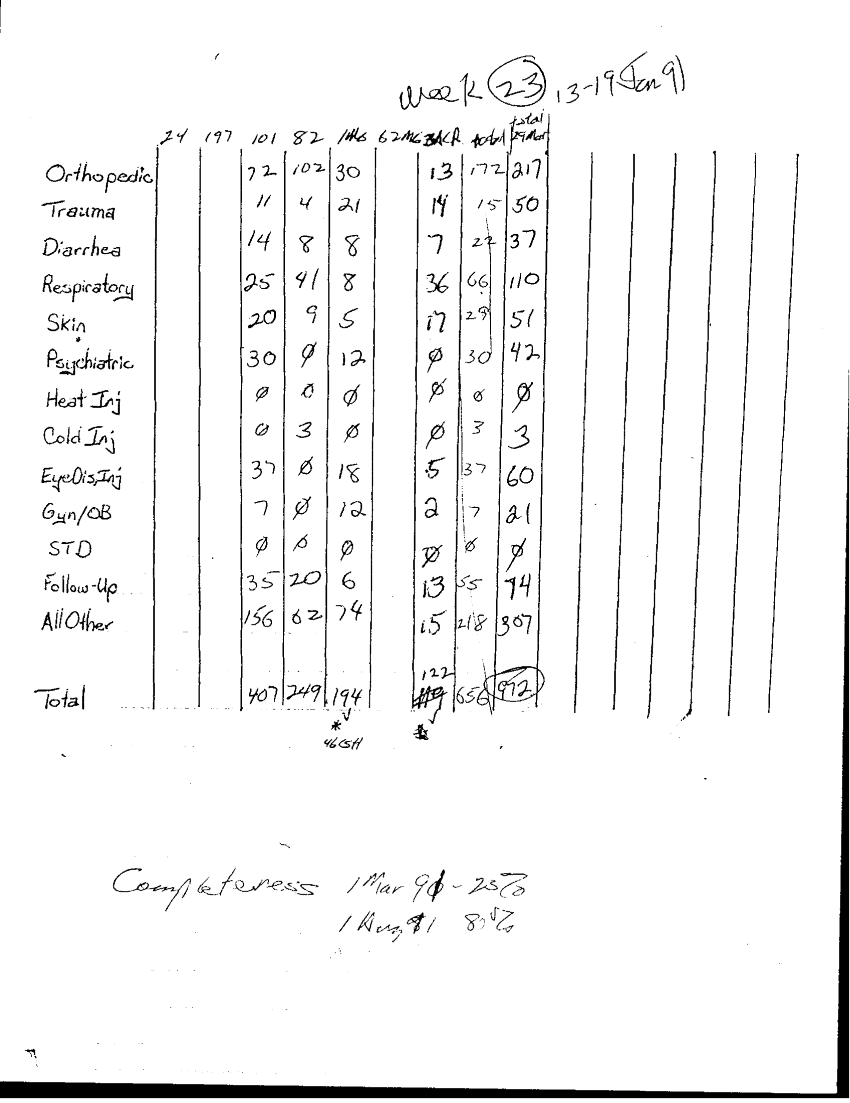 Week 23 13-19 Jan 91
24 197 101 82 62MG total total
Orthopedic 72 102 30 13 172 217
Trauma 11 4 21 14 15 50
Diarrhea 14 8 8 7 22 37
Respiratory 25 41 8 36 66 110
Skin 20 9 5 17 29 51
Psychiatric 30 0 12 0 30 42
Heat Inj 0 0 0 0 0 0
Cold Inj 0 3 0 0 3 3
EyeDis,Inj 37 0 18 5 37 60
Gyn/OB 7 0 12 2 7 21
STD 0 0 0 0 0 0
Follow-Up 35 20 6 13 55 74
All Other 156 62 74 15 218 307
122
Total 407 249 194 656 972
*
46 CSH
Completeness 1 Mar 91 - 25%
1 Aug 91